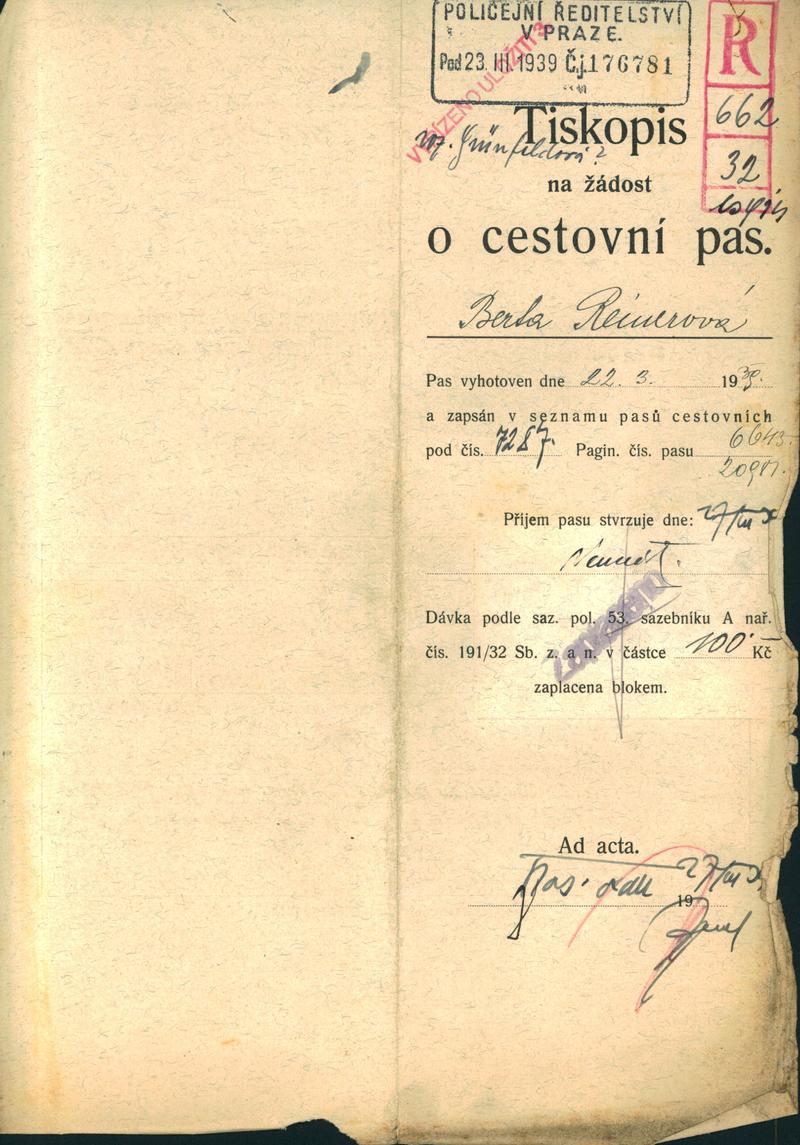 POLICEJNÍ ŘEDITELSTVÍ
V PRAZE.
Pod 23. III. 1939 Č.j. 176781
R
662
32
VYŘÍZENO ULOŽITI
Tiskopis
na žádost
o cestovní pas.
Berta Reinerová
Pas vyhotoven dne 22. 3. 1939.
a zapsán v seznamu pasů cestovních
pod čís. 7287. Pagin. čís. pasu 6643
Příjem pasu stvrzuje dne: 27/III
Dávka podle saz. pol. 53. sazebníku A nař.
čís. 191/32 Sb. z. a n. v částce 100·– Kč
zaplacena blokem.
Ad acta.
27/III
19